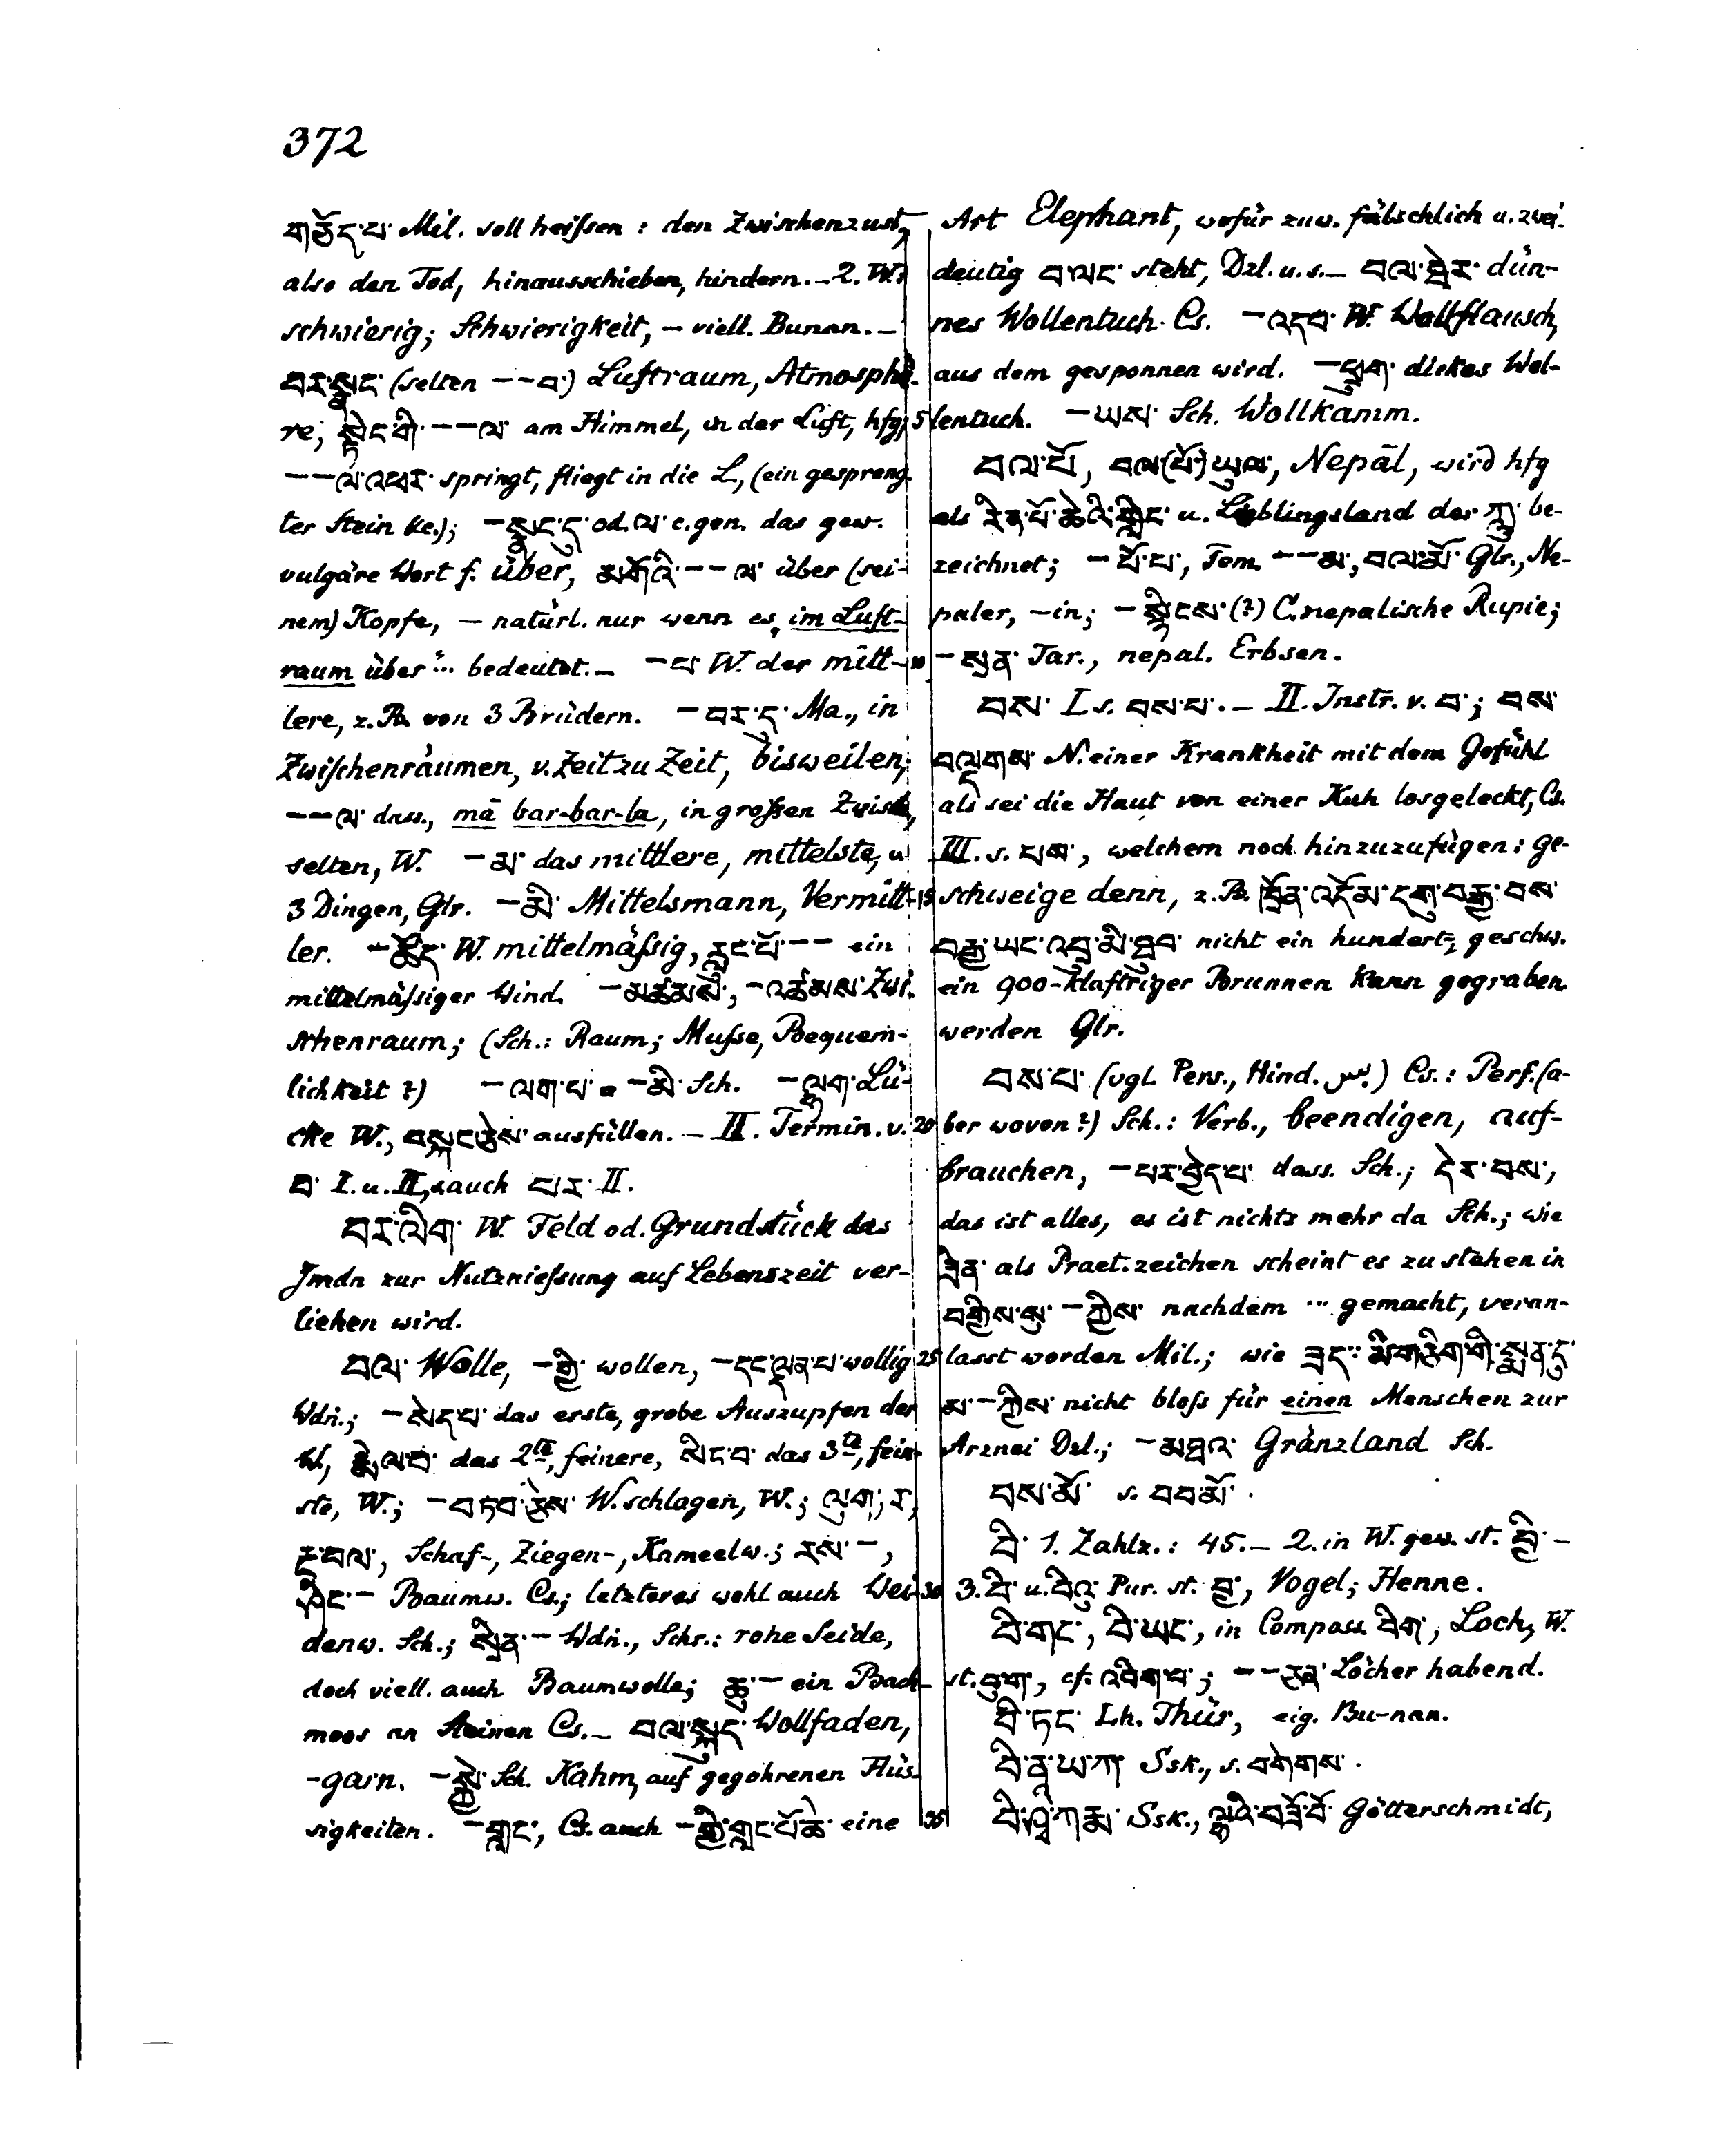 372
གཅོད་པ་ Mil. soll heißen: den Zwischenzust.,
also den Tod, hinausschieben, hindern. – 2. W.:
schwierig; Schwierigkeit, – viell. Bunan. –
བར་སྣང་ (selten – – བ་) Luftraum, Atmosphä-
re; སྟེང་གི་ – – ལ་ am Himmel, in der Luft, hfg;
– – ལ་འཕར་ springt, fliegt in die L., (ein gespreng-
ter Stein ꝛc.); – སྣང་དུ་ od. ལ་ c. gen. das gew.
vulgäre Wort f. über, མགོའི་ – – ལ་ über (sei-
nem) Kopfe, – natürl. nur wenn es, im Luft-
raum über ... bedeutet. – – པ་ W. der mitt-
lere, z.B. von 3 Brüdern. – བར་དུ་ Ma., in
Zwischenräumen, v. Zeit zu Zeit, bisweilen;
– – ལ་ dass., mā bar-bar-la, in großen Zwisch.,
selten, W. – མ་ das mittlere, mittelste, u
3 Dingen, Glr. – མི་ Mittelsmann, Vermitt-
ler. – ཚད་ W. mittelmäßig, རླུང་པོ་ – – ein
mittelmäßiger Wind. – མཚམས་, – འཚམས་ Zwi-
schenraum; (Sch.: Raum; Muße, Bequem-
lichkeit?) – ལག་པ་ = – མི་ Sch. – ལྷག་ Lü-
cke W., བསྐང་ཅེས་ ausfüllen. – II. Termin. v.
བ་ I. u. II, auch པར་ II.
བར་ལིག་ W. Feld od. Grundstück das
Jmdn zur Nutznießung auf Lebenszeit ver-
liehen wird.
བལ་ Wolle, – གྱི་ wollen, – དང་ལྡན་པ་ wollig
Wdn.; – སེད་པ་ das erste, grobe Auszupfen der
W., རྨེལ་བ་ das 2te, feinere, སིང་བ་ das 3te, fein-
ste, W.; – བཏབ་ཅེས་ W. schlagen, W.; ལུག་, ར་,
རྔ་བལ་, Schaf-, Ziegen-, Kameelw.; རས་ –,
ཤིང་ – Baumw. Cs.; letzteres wohl auch Wei-
denw. Sch.; སྲིན་ – Wdn., Schr.: rohe Seide,
doch viell. auch Baumwolle; ཆུ་ – ein Bach-
moos an Steinen Cs. – བལ་སྐུད་ Wollfaden,
-garn. – སྐྱེ་ Sch. Kahm, auf gegohrenen Flüs-
sigkeiten. – གླང་, Cs. auch – གྱི་གླང་པོ་ཆེ་ eine
Art Elephant, wofür zuw. fälschlich u. zwei-
deutig བ་ལང་ steht, Dzl. u. s. – བལ་ཐེར་ dün-
nes Wollentuch Cs. – འདབ་ W. Wollflausch,
aus dem gesponnen wird. – ཕྲུག་ dickes Wol-
lentuch. – ཡས་ Sch. Wollkamm.
བལ་པོ་, བལ་(པོ་)ཡུལ་, Nepāl, wird hfg
als རིན་པོ་ཆེའི་གླིང་ u. Lieblingsland der ཀླུ་ be-
zeichnet; – པོ་པ་, Fem. – – མ་, བལ་མོ་ Glr., Ne-
paler, -in; – སྟེངས་ (?) C. nepalische Rupie;
– སྲན་ Tar., nepal. Erbsen.
བས་ I s. བས་པ་. – II. Instr. v. བ་; བས་
བལྡགས་ N. einer Krankheit mit dem Gefühl
als sei die Haut von einer Kuh losgeleckt, Cs.
III. s. པས་, welchem noch hinzuzufügen: ge-
schweige denn, z.B. ཁྲོན་འདོམ་དགུ་བརྒྱ་བས་
བརྒྱ་ཡང་འབྲུ་མི་ཐུབ་ nicht ein hundert-, geschw.
ein 900-klaftriger Brunnen kann gegraben
werden Glr.
བས་པ་ (vgl. Pers., Hind. بس) Cs.: Perf. (a-
ber wovon?) Sch.: Verb., beendigen, auf-
brauchen, – པར་བྱེད་པ་ dass. Sch.; དེར་བས་,
das ist alles, es ist nichts mehr da Sch.; wie
ཟིན་ als Praet.zeichen scheint es zu stehen in
བགྱིས་སུ་ – ཀྱིས་ nachdem ... gemacht, veran-
lasst worden Mil.; wie ཟད་: མི་གཅིག་གི་སྨན་དུ་
མ་ – ཀྱིས་ nicht bloß für einen Menschen zur
Arznei Dzl.; – མཐའ་ Gränzland Sch.
བས་མོ་ s. བབ་མོ་.
བི་ 1. Zahlz.: 45. – 2. in W. gew. st. བྱི་ –
3. བི་ u. བིའུ་ Pur. st. བྱ་, Vogel; Henne.
བི་གང་, བི་ཡང་, in Compos. བིག་, Loch, W.
st. བུག་, cf. འབིག་པ་; – – ཅན་ Löcher habend.
བི་ཏང་ Lh. Thür, eig. Bu-nan.
བི་ནཱ་ཡ་ཀ་ Ssk., s. བགེགས་.
བི་ཤྭ་ཀརྨ་ Ssk., ལྷའི་བཟོ་བོ་ Götterschmidt,